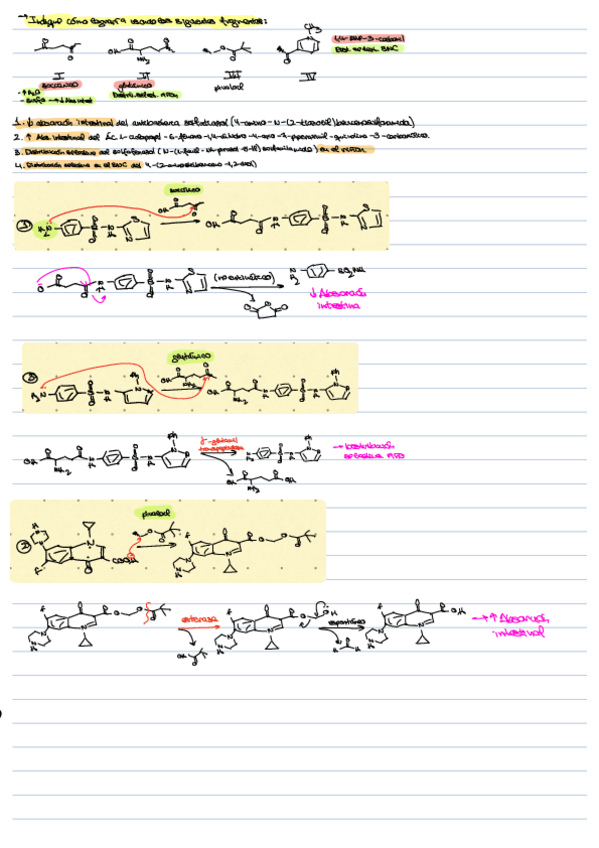 → Indique cómo lograría usando los siguientes fragmentos:
CH3
NH2
1,4-DHP-3-carbonil
Dist. select. SNC
I II III IV
succínico glutámico pivaloil
- ↑ H2O
Distrib. select. riñón
1. ↓ absorción intestinal del antibacteriano sulfatiazol (4-amino-N-(2-tiazolil)bencenosulfonamida)
2. ↑ Abs. intestinal del Ác. 1-ciclopropil-6-fluoro-1,4-dihidro-4-oxo-7-piperazinil-quinolina-3-carboxílico.
3. Distribución selectiva del sulfafenazol (N-(1-fenil-1H-pirazol-5-il) sulfanilamida) en el riñón
4. Distribución selectiva en el SNC del 4-(2-aminoetil)benceno-1,2-diol)
succínico
①
(no enzimático)
↓ Absorción
intestinal
glutámico
③
γ-glutamil
transpeptidasa
→ Distribución
selectiva riñón
pivaloil
②
COOH
esterasa
espontáneo
→ ↑ Absorción
intestinal